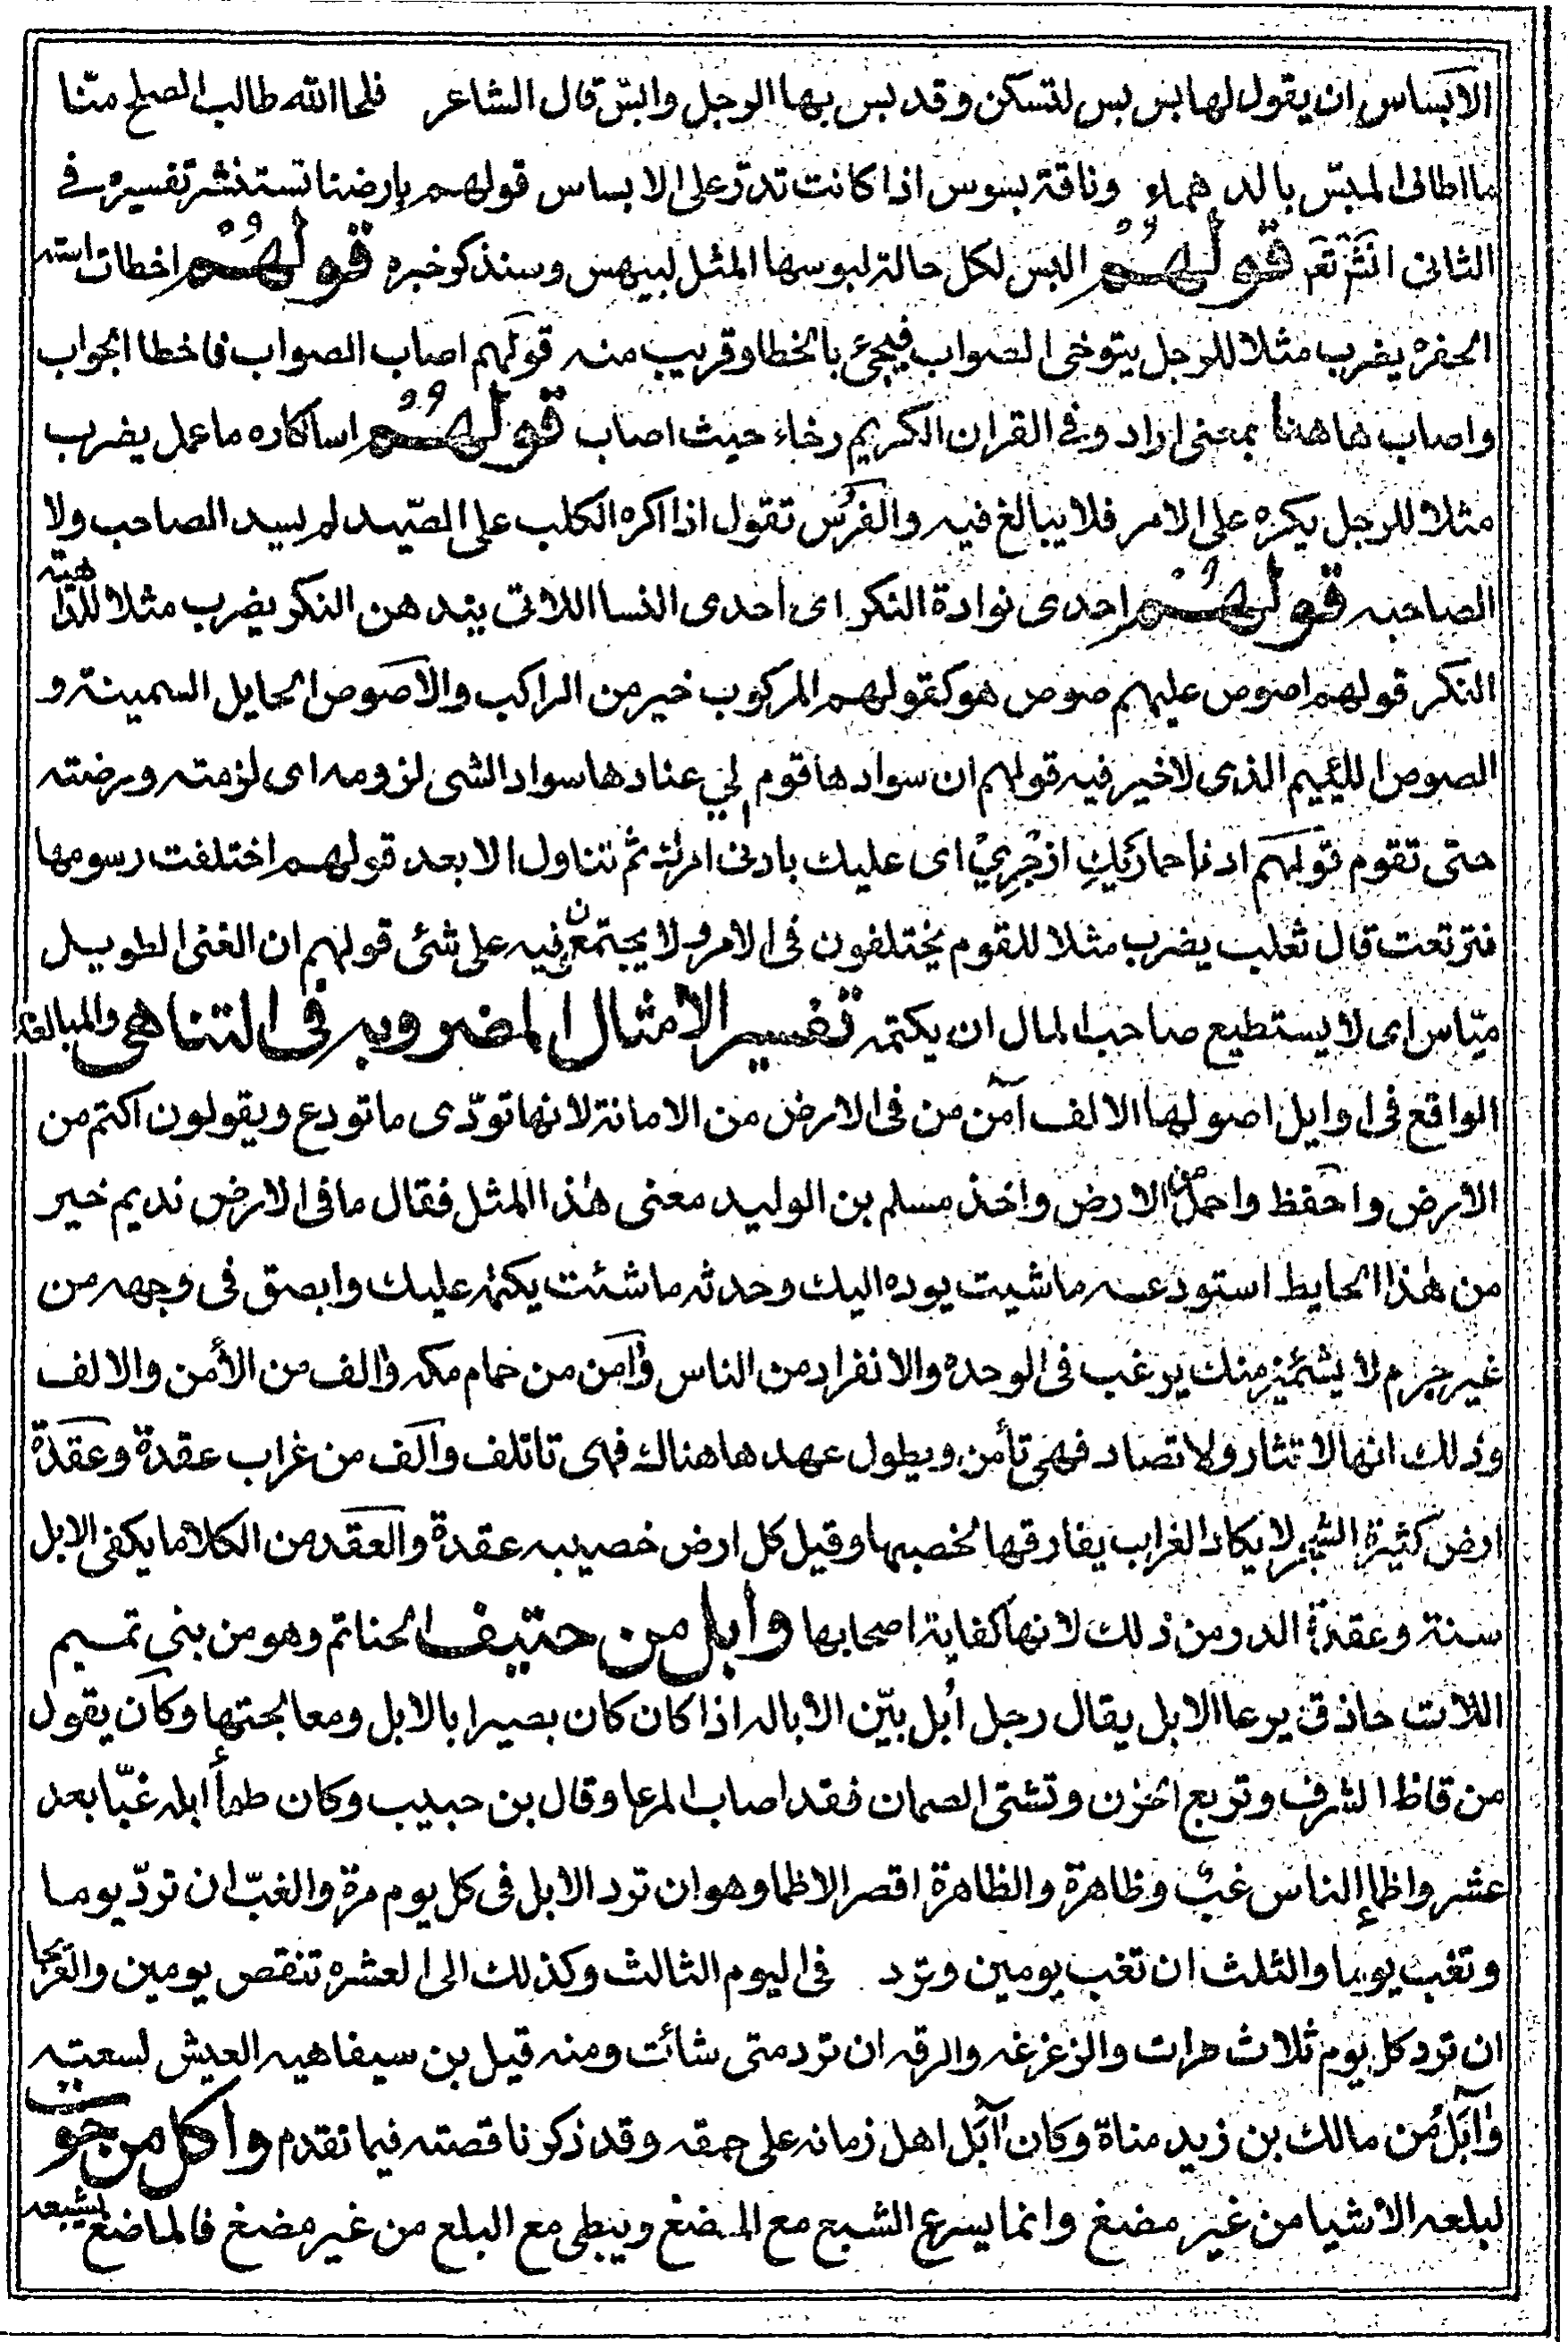 الابساس ان يقول لها بس بس لتسكن وقد بس بها الرجل وابس قال الشاعر فلحا الله طالب الصلح منّا
ما اطاف المبسّ بالدهماء وناقة بسوس اذا كانت تدرّ على الابساس قولهم بارضنا تستنشر تفسيره في
الثانى قولهُم البس لكل حالة لبوسها المثل لبيهس وسنذكر خبره قولهُم اخطات استه
الحفره يضرب مثلا للرجل يتوخى الصواب فيجئ بالخطا وقريب منه قولهم اصاب الصواب فاخطا الجواب
واصاب هاهنا بمعنى اراد وفى القران الكريم رخاء حيث اصاب قولهُم اساكاره ما عمل يضرب
مثلا للرجل يكره على الامر فلا يبالغ فيه والفرس تقول اذا اكره الكلب على الصّيد لم يسيد الصاحب ولا
الصاحبه قولهُم احدى نوادة النكر اى احدى النسا اللاتى يندهن النكر يضرب مثلا للدّاهيّة
النكر قولهم اصوص عليهم صوص هو كقولهم المركوب خير من الراكب والاصوص الحايل السمينة و
الصوص اللئيم الذى لا خير فيه قولهم ان سوادها قوم لي عنادها سواد الشى لزومه اى لزمته ورضته
حتى تقوم قولهم ادنا حماريك ازجري اى عليك بادنى امرك ثم تناول الابعد قولهم اختلفت رسومها
فترتعت قال ثعلب يضرب مثلا للقوم يختلفون فى الامر ولا يجتمعون فيه على شئ قولهم ان الغنى الطويل
ميّاس اى لا يستطيع صاحب المال ان يكتمه تفسير الامثال المضروبه فى التناهى والمبالغه
الواقع فى اوايل اصولها الالف آمن من فى الارض من الامانة لانها تودّى ما تودع ويقولون اكتم من
الارض واحفظ واحمل من الارض واخذ مسلم بن الوليد معنى هذا المثل فقال ما فى الارض نديم خير
من هذا الحايط استودعه ما شيت يوده اليك وحدثه ما شئت يكتمه عليك وابصق فى وجهه من
غير جرم لا يشمئز منك يرغب فى الوحده والانفراد من الناس وآمن من حمام مكه وآلف من الأمن والالف
وذلك انها لا تثار ولا تصاد فهى تأمن ويطول عهدها هناك فهى تاتلف وآلف من غراب عقدة وعقدة
ارض كثيرة الشجر لا يكاد الغراب يفارقها لخصبها وقيل كل ارض خصيبه عقدة والعقد من الكلا ما يكفى الابل
سنة وعقدة الدور من ذلك لانها كفاية اصحابها وآبل من حنيف الحناتم وهو من بنى تميم
اللات حاذق يرعا الابل يقال رجل أبل بيّن الأباله اذا كان كان بصيرا بالابل ومعالجتها وكان يقول
من قاظ الشرف وتربع الحزن وتشتى الصمان فقد اصاب المرعا وقال بن حبيب وكان ظمأ ابله غبّا بعد
عشر واظما الناس غبّ وظاهرة والظاهرة اقصر الاظما وهو ان ترد الابل فى كل يوم مرة والغبّ ان تردّ يوما
وتغب يوما والثلث ان تغب يومين وترد فى اليوم الثالث وكذلك الى العشره تنقص يومين والعريجا
ان ترد كل يوم ثلاث مرات والزغزغه والرفه ان ترد متى شائت ومنه قيل بن سيفاهيه العيش لسعته
وآبل من مالك بن زيد مناة وكان آبل اهل زمانه على حمقه وقد ذكرنا قصته فيما تقدم واكل من حوت
لبلعه الأشيا من غير مضغ وانما يسرع الشبع مع المضغ ويبطى مع البلع من غير مضغ فالماضغ يشبعه